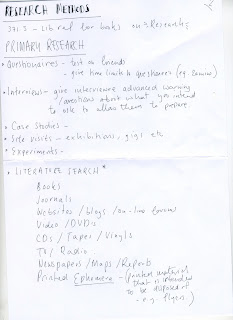 RESEARCH METHODS
371.3 - Lib ref for books on Research
PRIMARY RESEARCH
• Questionaires - test on friends
- give time limit to questionaire (eg. 2 minutes)
• Interviews - give interviewee advanced warning
/questions about what you intend
to ask to allow them to prepare.
• Case Studies -
• Site visits - exhibitions, gigs etc
• Experiments -
• LITERATURE SEARCH *
Books
Journals
Websites / blogs / on-line
Video / DVD's
CDs / Tapes / Vinyls
TV / Radio
Newspapers / Maps / Reports
Printed Ephemera - (printed materials
that is intended
to be disposed of
- e.g. flyers)